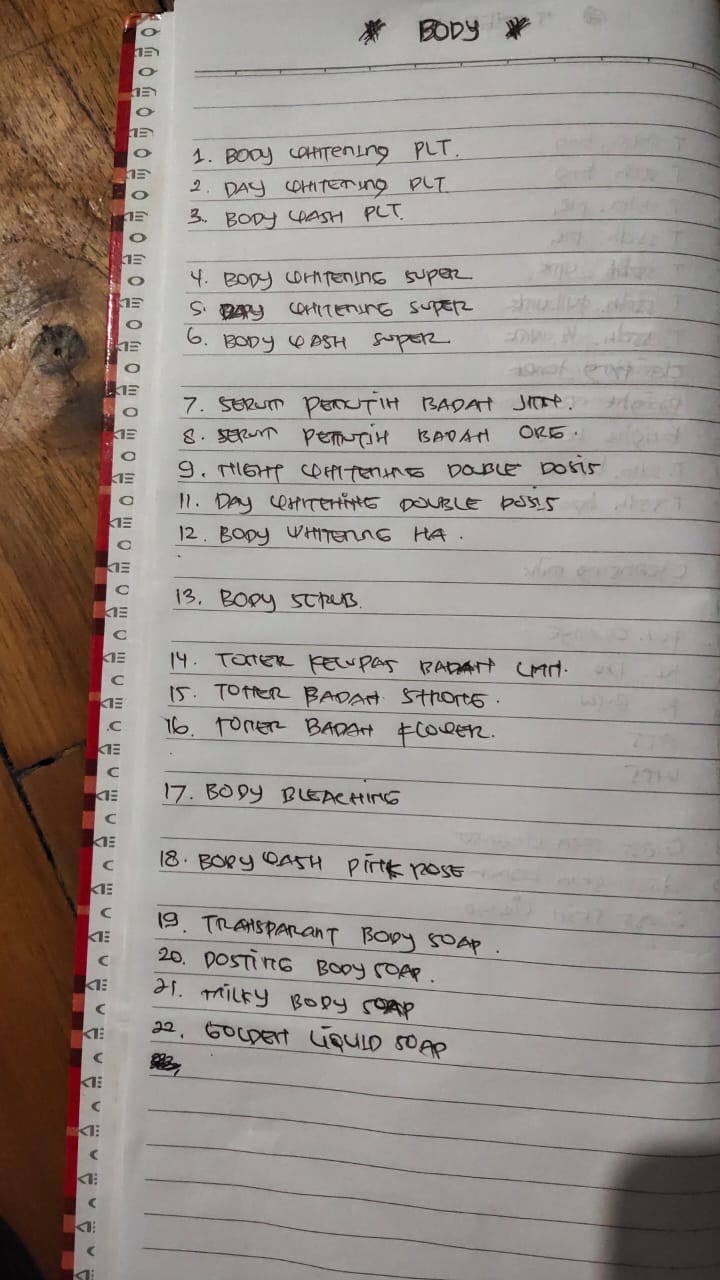 * BODY *
1. BODY WHITENING PLT.
2. DAY WHITENING PLT
3. BODY WASH PLT.
4. BODY WHITENING SUPER
5. DAY WHITENING SUPER
6. BODY WASH SUPER
7. SERUM PEMUTIH BADAN
8. SERUM PEMUTIH BADAN ORG.
9. NIGHT WHITENING DOUBLE DOSIS
11. DAY WHITENING DOUBLE DOSIS
12. BODY WHITENING HA.
13. BODY SCRUB.
14. TONER KELUPAS BADAN
15. TONER BADAN STRONG.
16. TONER BADAN FLOWER.
17. BODY BLEACHING
18. BODY WASH PINK ROSE
19. TRANSPARANT BODY SOAP.
20. DOSTING BODY SOAP.
21. MILKY BODY SOAP
22. GOLDEN LIQUID SOAP